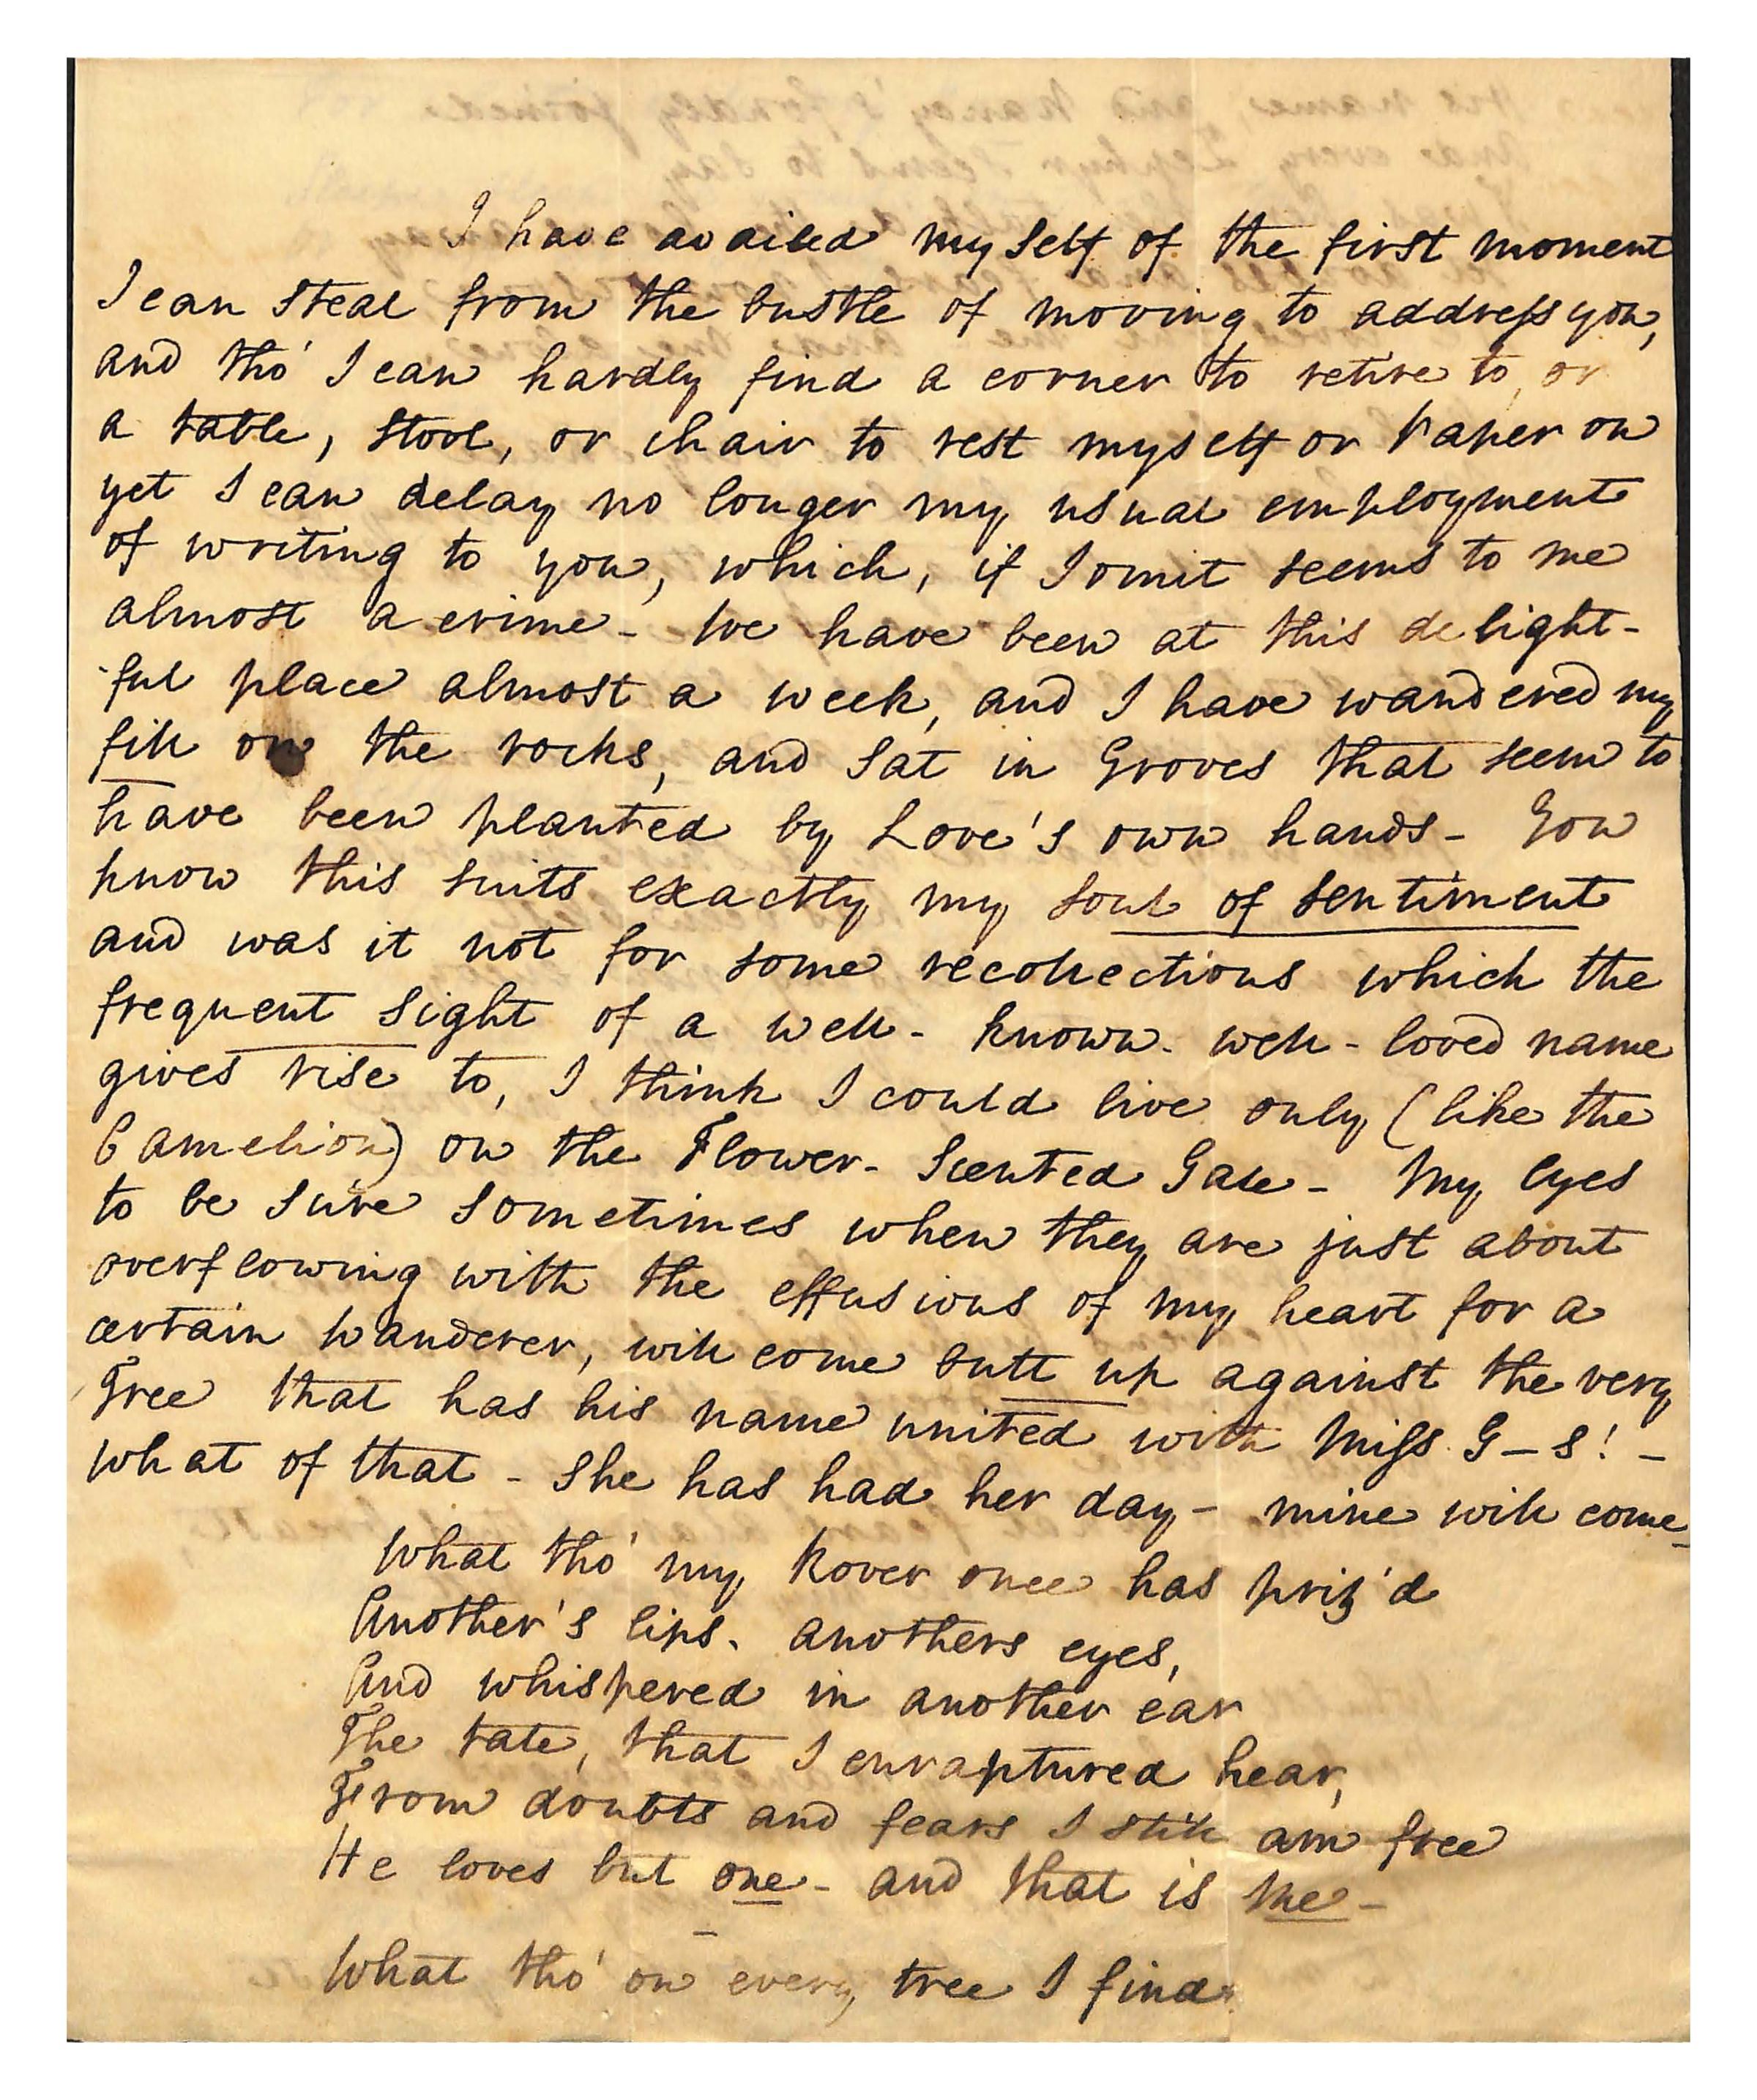 I have availed myself of the first moment
I can steal from the bustle of moving to address you,
and tho' I can hardly find a corner to retire to, or
a table, stool, or chair to rest myself or paper on
yet I can delay no longer my usual employment
of writing to you, which, if I omit seems to me
almost a crime - We have been at this delight-
-ful place almost a week, and I have wandered my
fill on the rocks, and sat in Groves that seem to
have been planted by Love's own hands - You
know this suits exactly my soul of sentiment
and was it not for some recollections which the
frequent sight of a well-known-well-loved name
gives rise to, I think I could live only (like the
Camelion) on the Flower-Scented Gale - My eyes
to be sure sometimes when they are just about
overflowing with the effusions of my heart for a
certain Wanderer, will come butt up against the very
Tree that has his name united with Miss G-s! -
What of that - She has had her day - mine will come -
What tho' my Rover once has priz'd
Another's lips, anothers eyes,
And whispered in another ear
The tale, that I enraptured hear,
From doubts and fears I still am free
He loves but one - and that is me -
What tho' on every tree I find